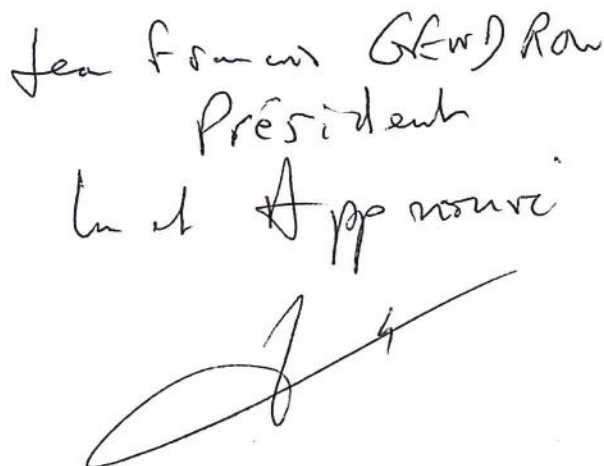 Jean François GENDRON
Président
Lu et Approuvé